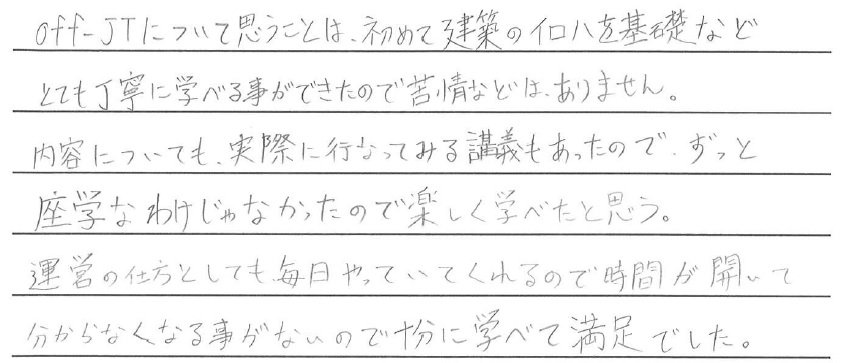 off-JTについて思うことは、初めて建築のイロハを基礎など
とても丁寧に学べる事ができたので苦情などは、ありません。
内容についても、実際に行なってみる講義もあったので、ずっと
座学なわけじゃなかったので楽しく学べたと思う。
運営の仕方としても、毎日やっていてくれるので時間が開いて
分からなく、なる事がないので十分に学べて満足でした。